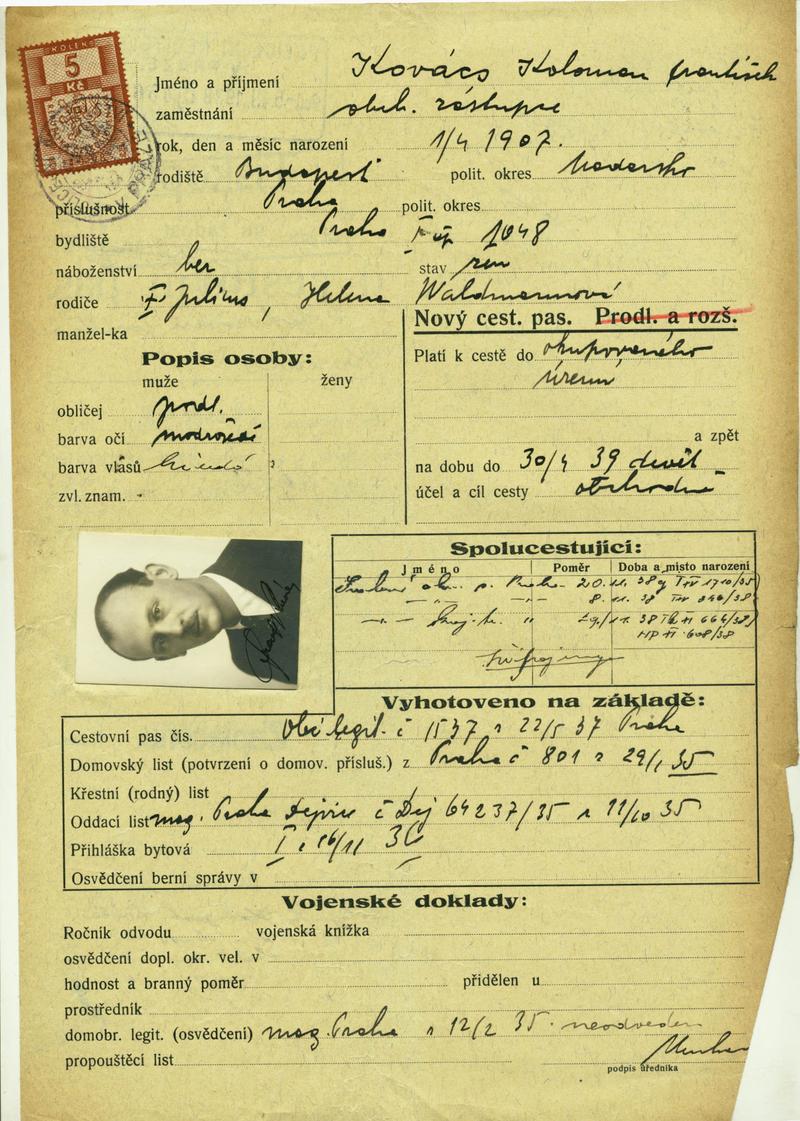 KOLEK
5
Kč
Jméno a příjmení Kovács Koloman František
zaměstnání obch. zástupce
rok, den a měsíc narození 1/4 1907.
rodiště Budapest polit. okres Maďarsko
příslušnost Praha polit. okres
bydliště Praha 1048
náboženství bez stav žen
rodiče Julius, Helena Waldmannová
manžel-ka
Nový cest. pas. Prodl. a rozš.
Popis osoby:
muže ženy
obličej podl.
barva očí modrošedé
barva vlasů hnědé
zvl. znam. -
Platí k cestě do okupovaného
území
a zpět
na dobu do 30/4 39 devět
účel a cíl cesty obchodně
Spolucestující:
Jméno Poměr Doba a místo narození
20. 11. 38
8. 11. 38
11. 38
608/38
Vyhotoveno na základě:
Cestovní pas čís. Obč. legit. č 1537 z 22/5 37 Praha
Domovský list (potvrzení o domov. přísluš.) z Praha č 801 z 29/1 35
Křestní (rodný) list
Oddací list mag. Praha Dejvice č Dej 64237/35 z 11/10 35
Přihláška bytová I. 16/11 36
Osvědčení berní správy v
Vojenské doklady:
Ročník odvodu vojenská knížka
osvědčení dopl. okr. vel. v
hodnost a branný poměr přidělen u
prostředník
domobr. legit. (osvědčení) mag. Praha z 12/2 35. neodveden
propouštěcí list
podpis úředníka